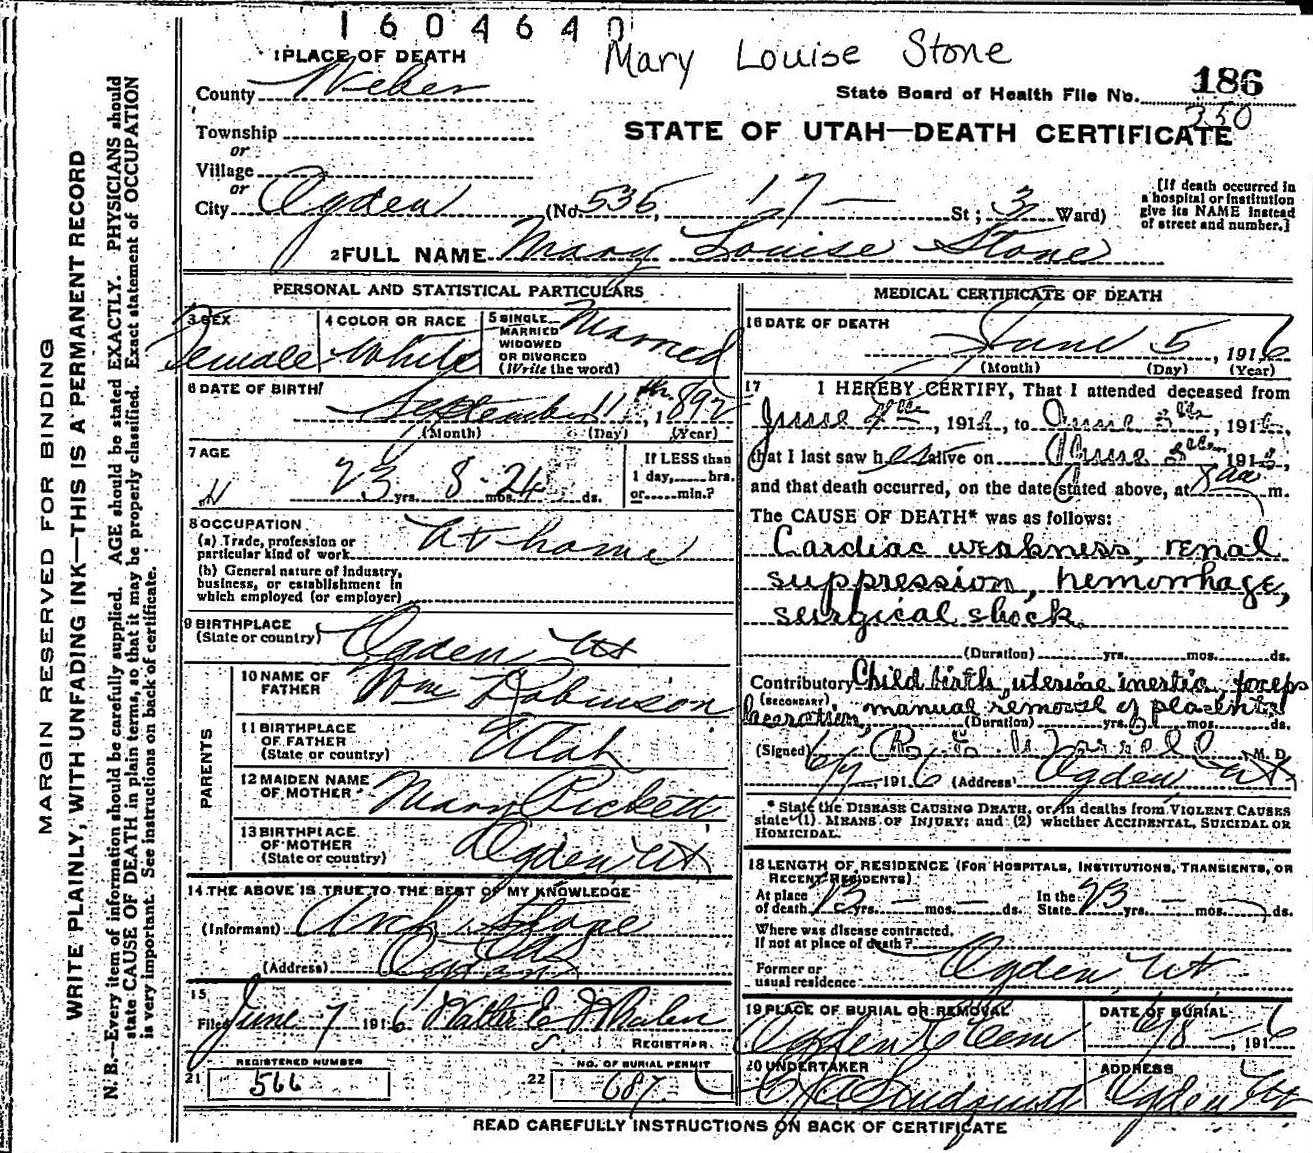 1604640
Mary Louise Stone
1 PLACE OF DEATH
186
County Weber
State Board of Health File No. 350
Township
or
STATE OF UTAH—DEATH CERTIFICATE
Village
or
City Ogden (No. 535, 17 — St ; 3 Ward)
[If death occurred in
a hospital or institution
give its NAME instead
of street and number.]
2 FULL NAME Mary Louise Stone
PERSONAL AND STATISTICAL PARTICULARS
3 SEX
Female
4 COLOR OR RACE
White
5 SINGLE
MARRIED
WIDOWED
OR DIVORCED
(Write the word)
Married
6 DATE OF BIRTH
September 11th, 1892
(Month) (Day) (Year)
7 AGE
23 yrs. 8 mos. 24 ds.
If LESS than
1 day, hrs.
or min.?
8 OCCUPATION
(a) Trade, profession or
particular kind of work at home
(b) General nature of industry,
business, or establishment in
which employed (or employer)
9 BIRTHPLACE
(State or country) Ogden Ut
PARENTS
10 NAME OF
FATHER Wm Robinson
11 BIRTHPLACE
OF FATHER
(State or country) Utah
12 MAIDEN NAME
OF MOTHER Mary Pickett
13 BIRTHPLACE
OF MOTHER
(State or country) Ogden, Ut
14 THE ABOVE IS TRUE TO THE BEST OF MY KNOWLEDGE
(Informant) Arch Stone
(Address) Ogden Ut
15
Filed June 7 1916 Walter E Whalen
REGISTRAR.
REGISTERED NUMBER
21 566
NO. OF BURIAL PERMIT
22 687
MEDICAL CERTIFICATE OF DEATH
16 DATE OF DEATH
June 5, 1916
(Month) (Day) (Year)
17 I HEREBY CERTIFY, That I attended deceased from
June, 191, to June 5th, 1916,
that I last saw her alive on June 5th 191
and that death occurred, on the date stated above, at 8 m.
The CAUSE OF DEATH* was as follows:
Cardiac weakness, renal
suppression, hemorrhage,
surgical shock.
(Duration) yrs. mos. ds.
Contributory Child birth, uterine inertia, forceps
(SECONDARY)
laceration, manual removal of placenta
(Duration) yrs. mos. ds.
(Signed) M. D.
6/7, 1916 (Address) Ogden Ut
* State the DISEASE CAUSING DEATH, or, in deaths from VIOLENT CAUSES
state (1) MEANS OF INJURY; and (2) whether ACCIDENTAL, SUICIDAL OR
HOMICIDAL.
18 LENGTH OF RESIDENCE (FOR HOSPITALS, INSTITUTIONS, TRANSIENTS, OR
RECENT RESIDENTS)
At place
of death 23 yrs. — mos. — ds. In the
State 23 yrs. — mos. — ds.
Where was disease contracted,
If not at place of death?
Former or
usual residence Ogden, Ut
19 PLACE OF BURIAL OR REMOVAL
Ogden Cem
DATE OF BURIAL
6/8 —, 1916
20 UNDERTAKER
ADDRESS
Ogden Ut
READ CAREFULLY INSTRUCTIONS ON BACK OF CERTIFICATE
MARGIN RESERVED FOR BINDING
WRITE PLAINLY, WITH UNFADING INK—THIS IS A PERMANENT RECORD
N. B.—Every item of information should be carefully supplied. AGE should be stated EXACTLY. PHYSICIANS should
state CAUSE OF DEATH in plain terms, so that it may be properly classified. Exact statement of OCCUPATION
is very important. See instructions on back of certificate.